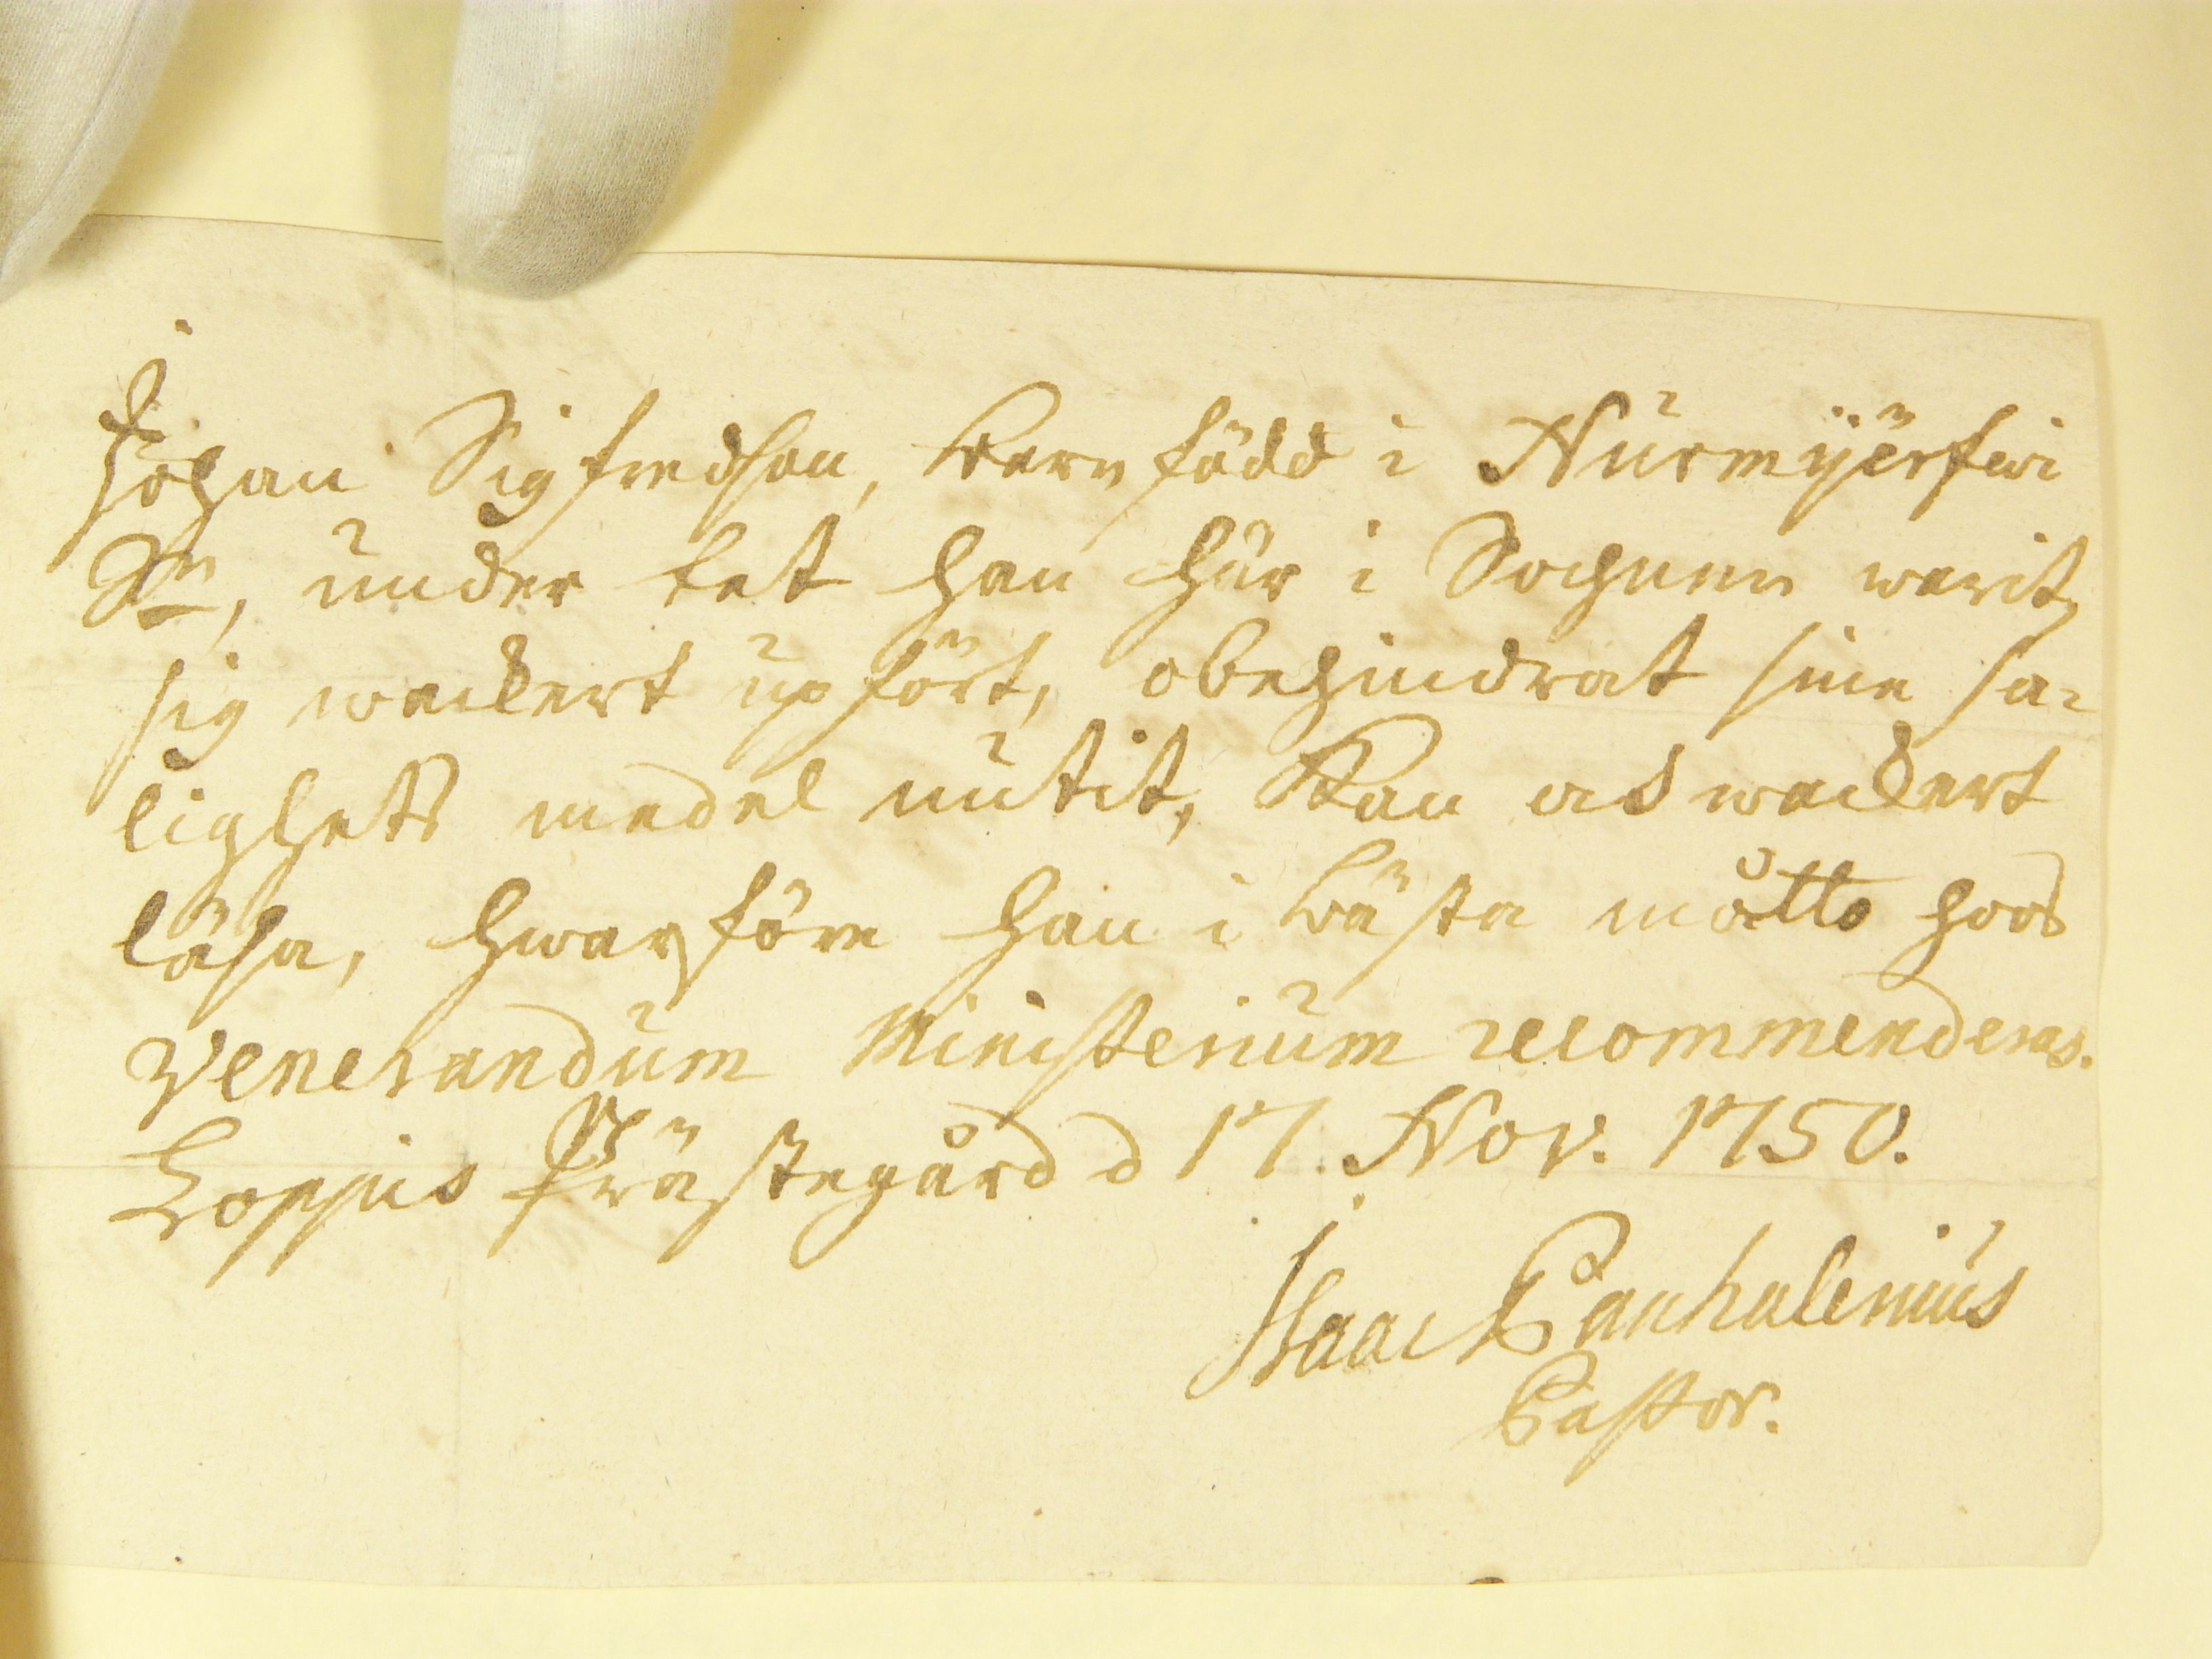 Johan Sigfredson, barn född i Nurmyërfwi
Sn, under tet han här i Sochnen warit,
sig wackert upfört, obehindrat sine sa-
lighets medel nutit, Kan ock wackert
läsa, hwarföre han i bästa måtto hoos
Venerandum Ministerium recommenderas.
Loppis Prästegård d 17. Nov. 1750.
Isaac Panhulenius
Pastor.